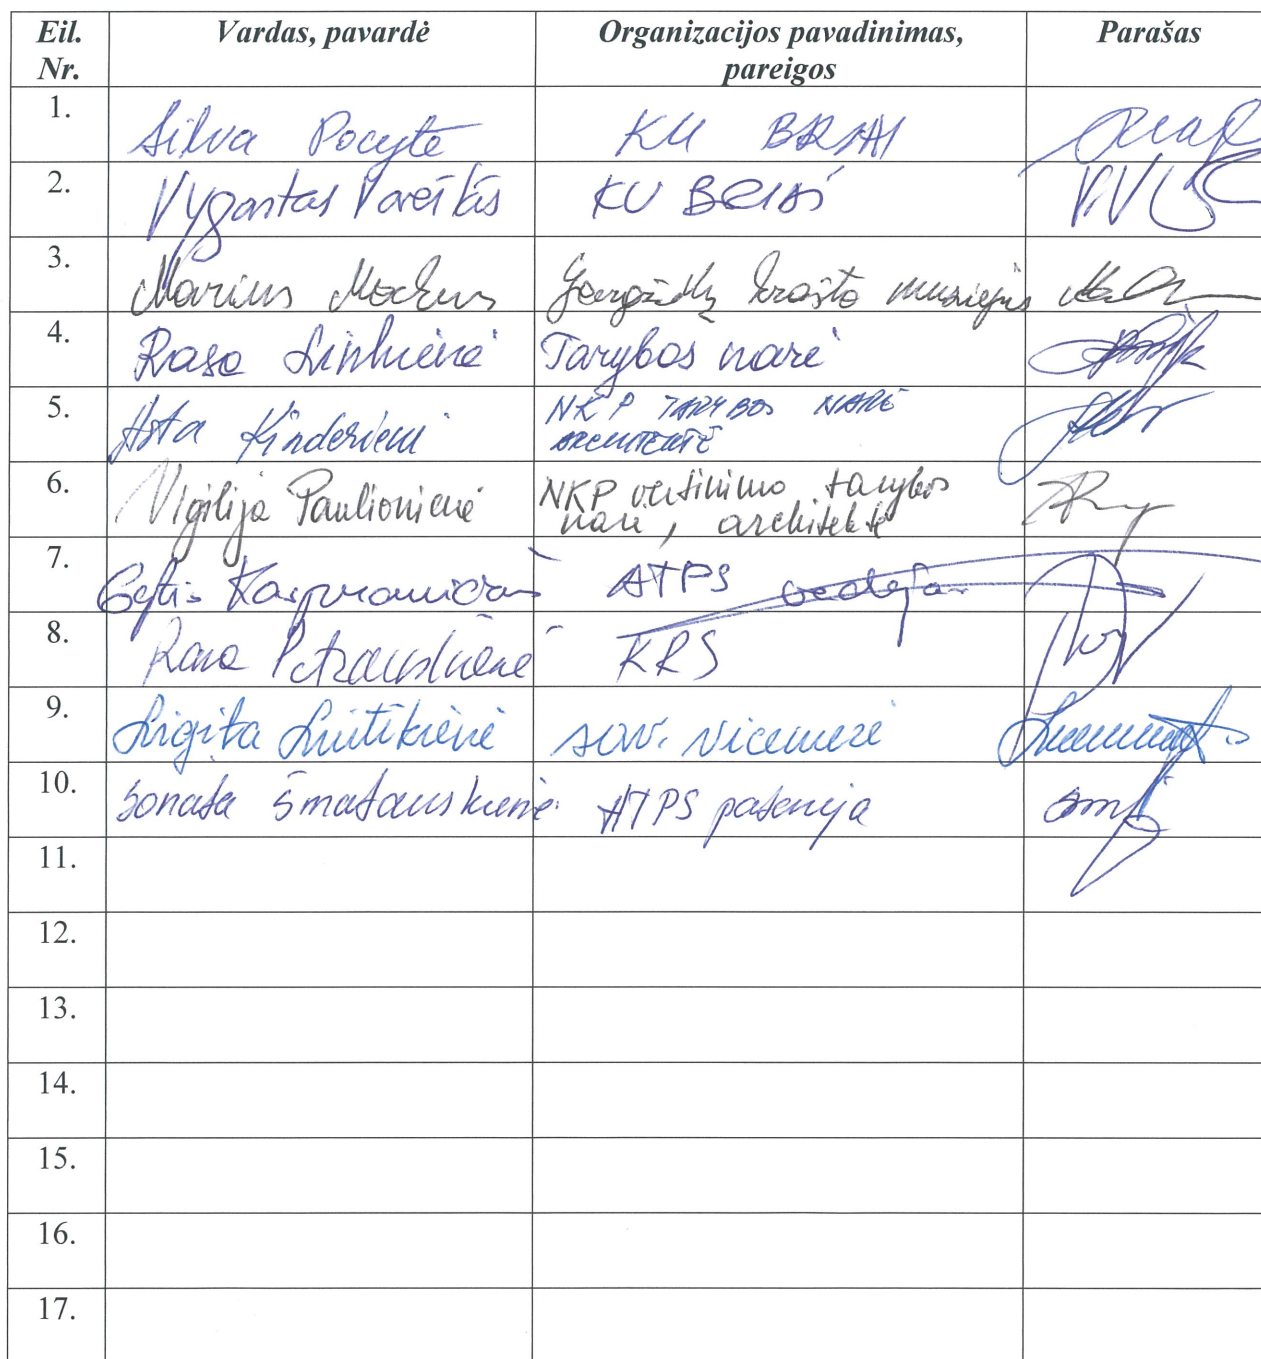 Eil. Nr. Vardas, pavardė Organizacijos pavadinimas, pareigos Parašas
1. Silva Pocytė KU BRIAI
2. Vygantas Vareikis KU BRIAI
3. Marius Mockus Gargždų krašto muziejus
4. Rasa Tarybos narė
5. Asta Kinderienė NKP TARYBOS NARĖ
ARCHITEKTĖ
6. Vigilija Paulionienė NKP vertinimo tarybos
narė, architektė
7. Gytis Kasperavičius ATPS vedėjas
8. Rasa Petrauskienė KRS
9. Ligita Liutikienė sav. vicemerė
10. Sonata Šmatauskienė ATPS patarėja
11.
12.
13.
14.
15.
16.
17.